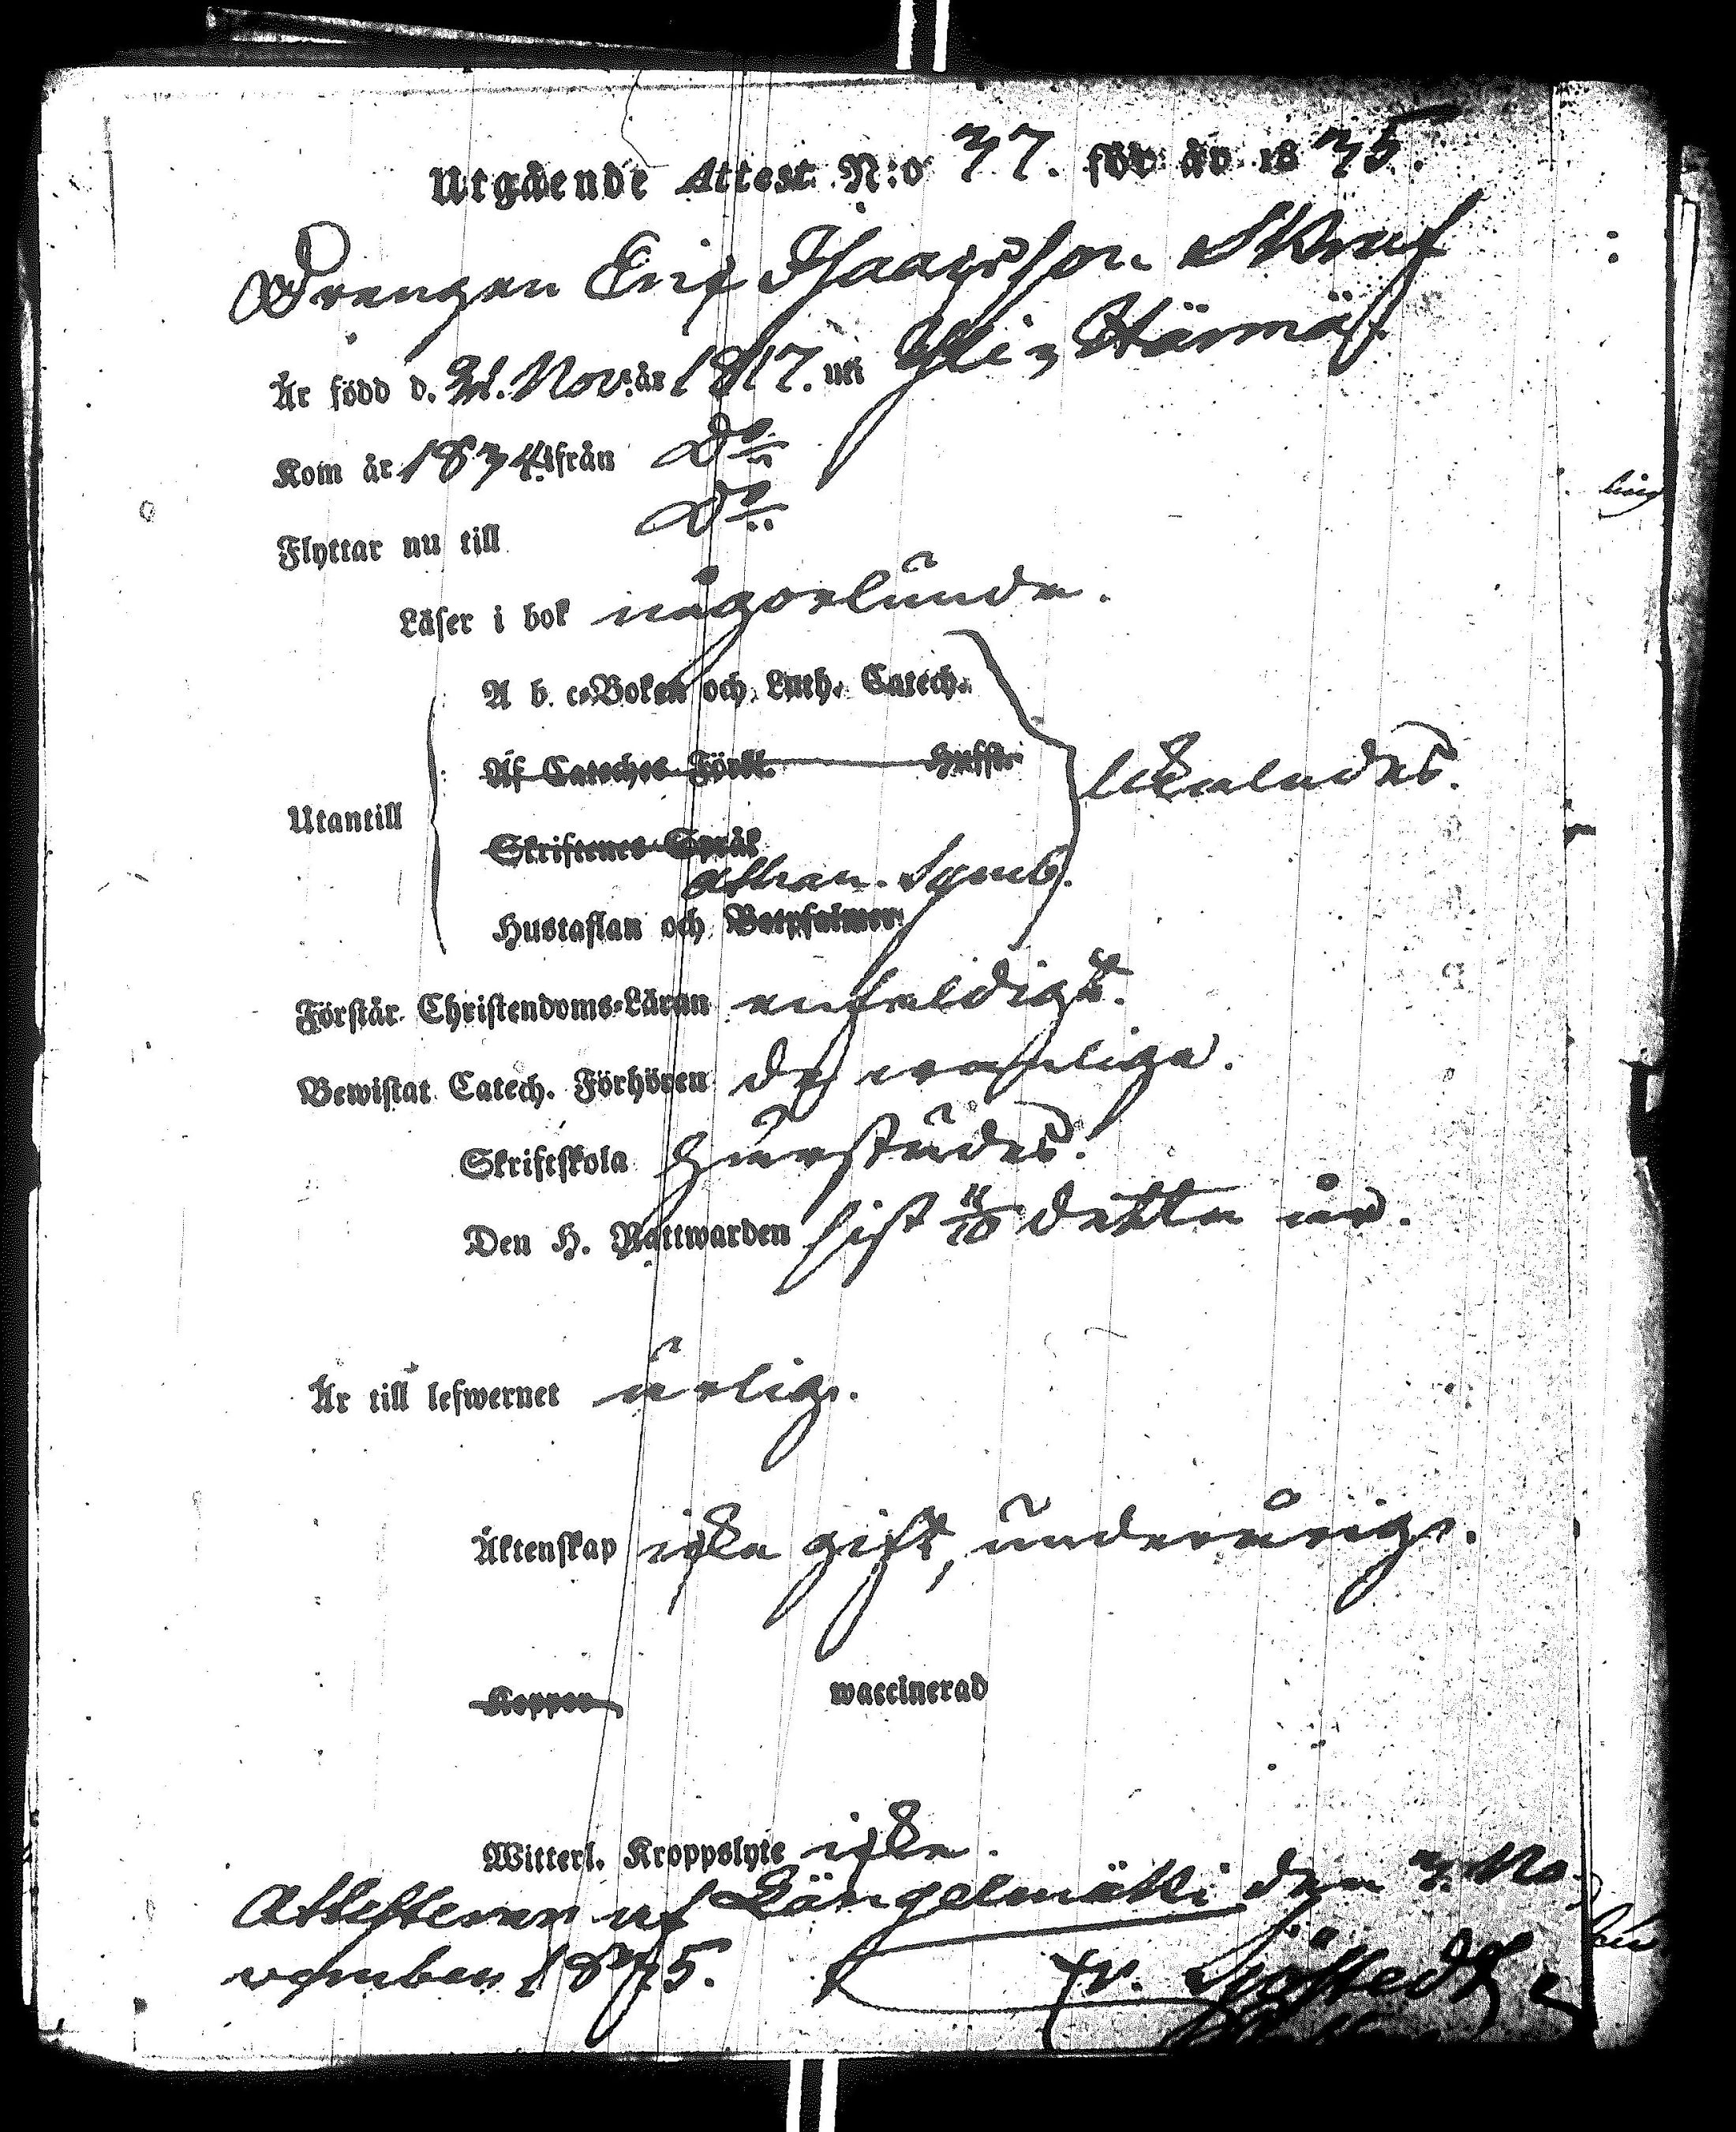 Utgående Attest N:o 37. för år 1835.
Drengen Eric Isaacsson Skruf
Är född d. 21. Nov. år 1817. uti Yli=Härmä
Kom år 1834 från D:o
Flyttar nu till D:o
Läser i bok någorlunda.
A b. c=Boken och Luth. Catech.
Af Cateches Förkl. Hufst.
likaledes.
Utantill
Skriftenes Språk
Athan. Symb.
Hustaflan och Botpsalmer
Förstår Christendoms=Läran enfaldigt.
Bewistat Catech. Förhören de wanliga.
Skriftskola härstädes.
Den H. Nattwarden sist detta år.
Är till lefwernet ärlig.
Äktenskap icke gift, underårig.
Koppor waccinerad
Witterl. Kroppslyte icke.
Attesterar af Längelmäki den 3. No-
vember 1835. Fr. Sjöstedt